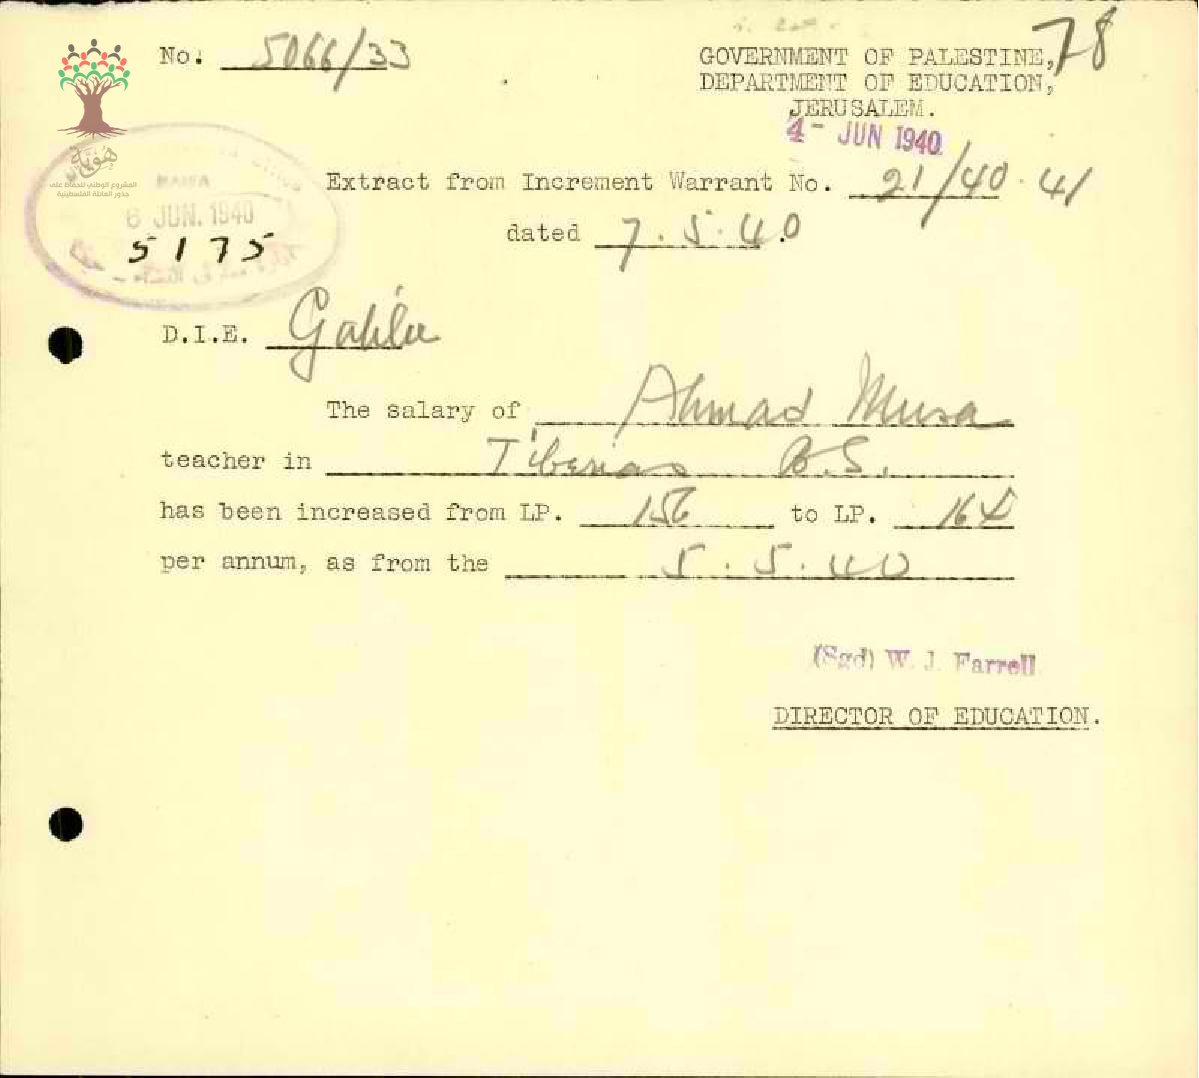 No. 5066/33
78
GOVERNMENT OF PALESTINE,
DEPARTMENT OF EDUCATION,
JERUSALEM.
4 - JUN 1940
هُوِيَّة
المشروع الوطني للحفاظ على
جذور العائلة الفلسطينية
HAIFA
6 JUN. 1940
5175
Extract from Increment Warrant No. 21/40.41
dated 7.5.40.
D.I.E. Galilee
The salary of Ahmad Musa
teacher in Tiberias B.S.
has been increased from LP. 156 to LP. 164
per annum, as from the 5.5.40
(Sgd) W. J. Farrell
DIRECTOR OF EDUCATION.